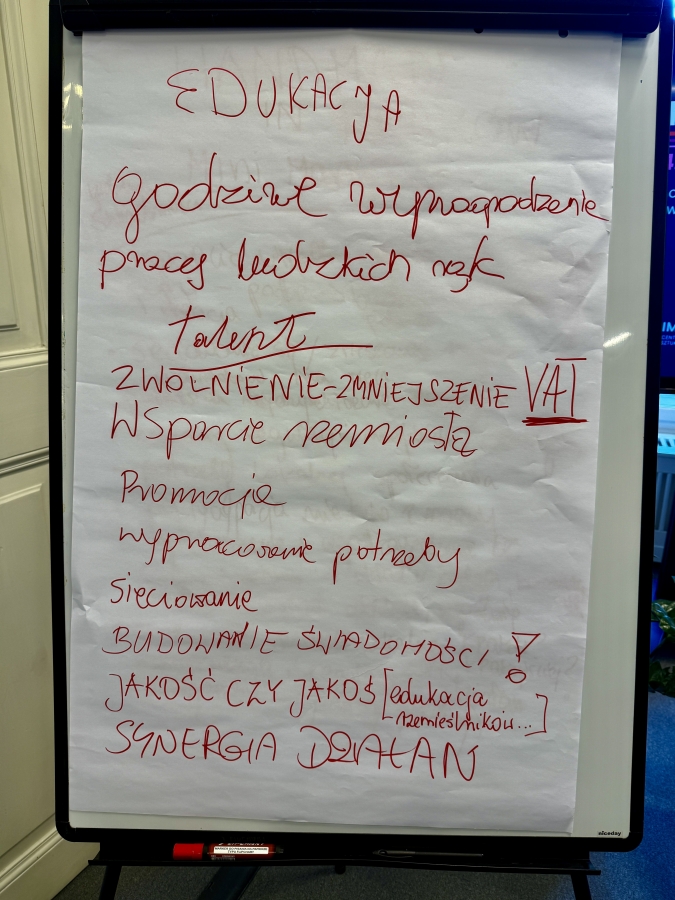 EDUKACJA
Godziwe wynagrodzenie
pracy ludzkich rąk
talent
ZWOLNIENIE-ZMNIEJSZENIE VAT
Wsparcie rzemiosła
Promocja
wypracowanie potrzeby
sieciowanie
BUDOWANIE ŚWIADOMOŚCI !
JAKOŚĆ CZY JAKOŚ [edukacja
rzemieślników...]
SYNERGIA DZIAŁAŃ
niceday